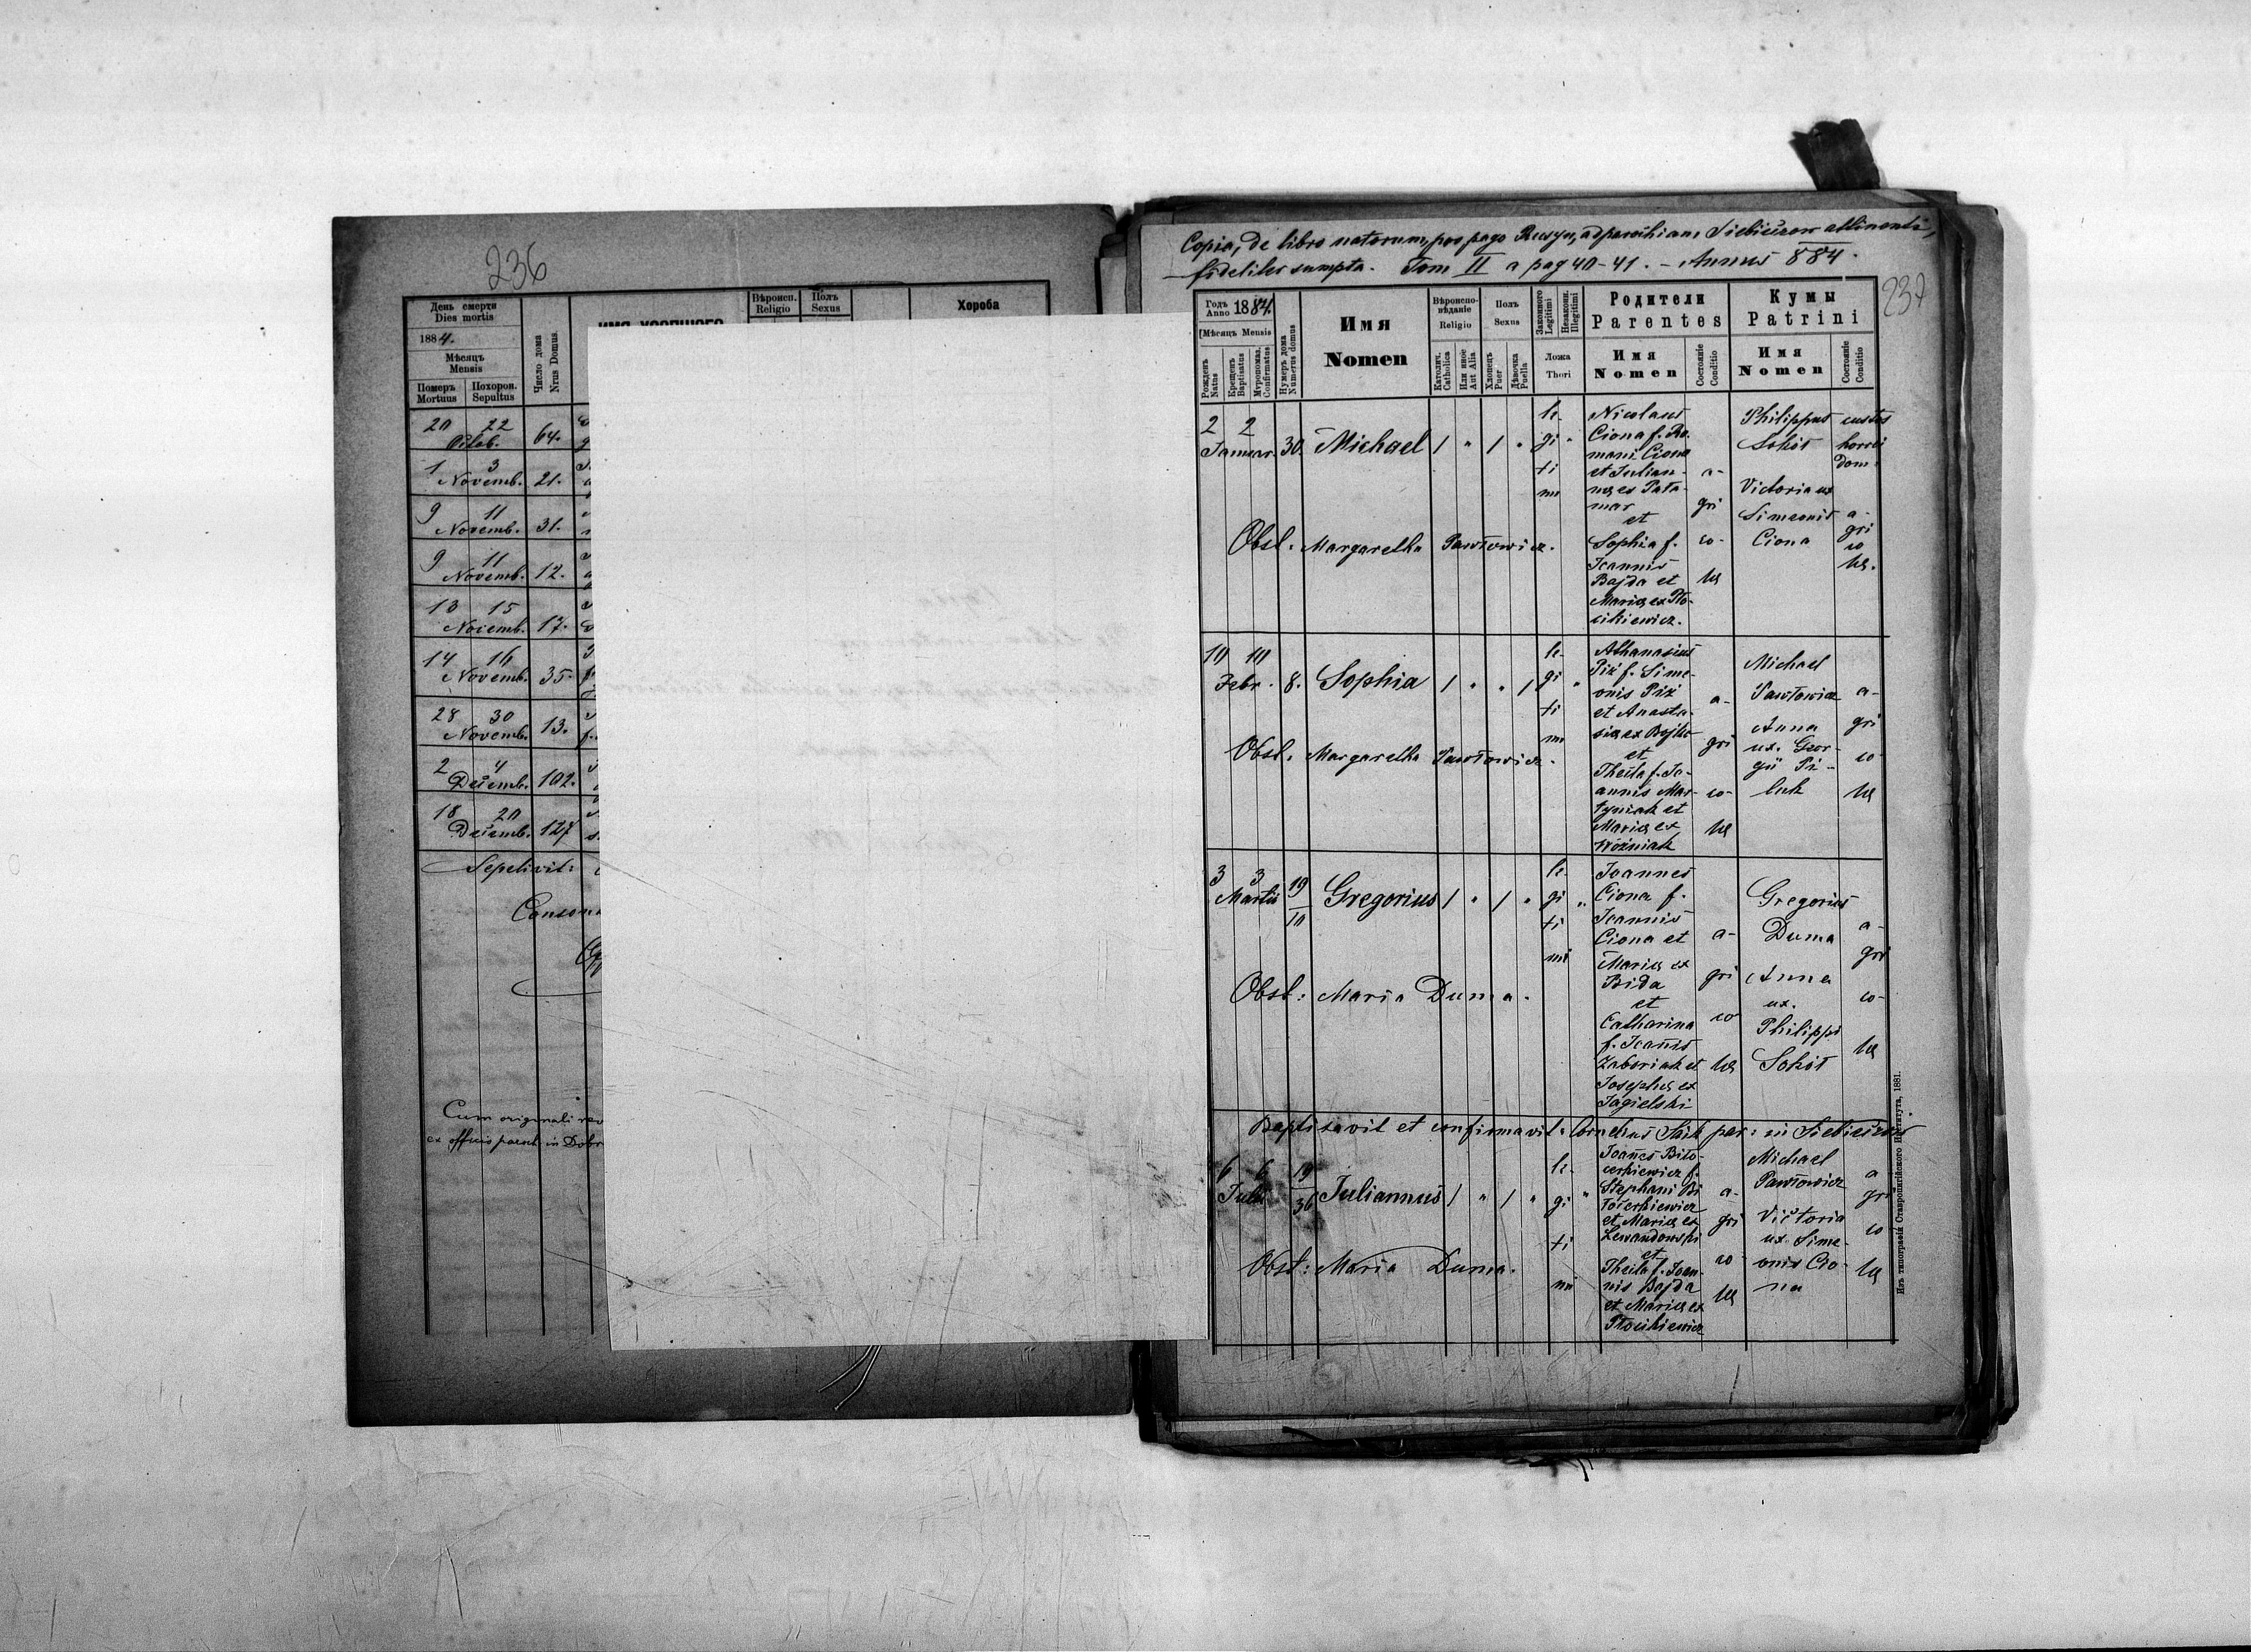 236
День смерти
Dies mortis
1884.
Мѣсяцъ
Mensis
Померъ
Mortuus
Похорон.
Sepultus
Число дома
Nrus Domus.
Вѣроисп.
Religio
Полъ
Sexus
Хороба
20 22
64.
1 3
Novemb. 21.
9 11
Novemb. 31.
9 11
Novemb. 12.
13 15
Novemb. 17.
14 16
Novemb. 35.
28 30
Novemb. 13.
2 4
Decemb. 102.
18 20
Decemb. 127
Sepelivit:
Cum originali
ex officio paroch. in Dobr
Copia, de libro natorum, pro pago Rusyn, ad parochiam Siebieczow attinenti,
fideliter sumpta. Tom II a pag 40-41. - Annus 884.
237
Годъ
Anno 1884.
Мѣсяцъ Mensis
Рожденъ
Natus
Крещенъ
Baptisatus
Мѵропомаз.
Confirmatus
Нумеръ дома
Numerus domus
Имя
Nomen
Вѣроиспо-
вѣданіе
Religio
Католич.
Catholica
Или иное
Aut Alia
Полъ
Sexus
Хлопецъ
Puer
Дѣвочка
Puella
Законного
Legitimi
Незаконн.
Illegitimi
Ложа
Thori
Родители
Parentes
Имя
Nomen
Состояніе
Conditio
Кумы
Patrini
Имя
Nomen
Состояніе
Conditio
2 2
Januar. 30. Michael 1 " 1 "
le-
gi "
ti
mi
Nicolaus
Ciona f. Ro.
mani Ciona
et Julian-
næ ex Pata-
mar
et
Sophia f.
Joannis
Bajda et
Mariæ ex Pło-
cikiewicz.
a-
gri
co-
læ
Philippus
Sokół
Victoria ux
Simeonis
Ciona
custos
horrei
dom.
a-
gri
co
læ.
Obst. Margaretha Pawłowicz.
10 10
Febr. 8. Sophia 1 " " 1
le-
gi "
ti
mi
Athanasius
Piż f. Sime-
onis Piż
et Anasta-
siæ ex Bojko
et
Thecla f. Jo-
annis Mar-
tyniak et
Mariæ ex
Woźniak
a-
gri
co-
læ
Michael
Pawłowicz
Anna
ux. Geor-
gii Pi-
luk
a-
gri
co-
læ
Obst. Margaretha Pawłowicz.
3 3
Martii 19/10 Gregorius 1 " 1 "
le-
gi "
ti
mi
Joannes
Ciona f.
Joannis
Ciona et
Mariæ ex
Bida
et
Catharina
f. Joannis
Zaboriak et
Josephæ ex
Jagielski
a-
gri
co
læ
Gregorius
Duma
Anna
ux.
Philippi
Sokół
a-
gri
co-
læ
Obst: Maria Duma.
Baptisavit et confirmavit: Cornelius Saik par: in Siebieczow
6 6
Julii 19/36 Juliannus 1 " 1 "
le-
gi "
ti
mi
Joannes Biło-
cerkiewicz f.
Stephani Bi
łocerkiewicz
et Mariæ ex
Lewandowski
et
Thecla f. Joan-
nis Bajda
et Mariæ ex
Płocikiewicz
a-
gri
co-
læ
Michael
Pawłowicz
Victoria
ux. Sime-
onis Cio-
na
a
gri
co
læ
Obst: Maria Duma.
Изъ типографіи Ставропигійского Института, 1881.